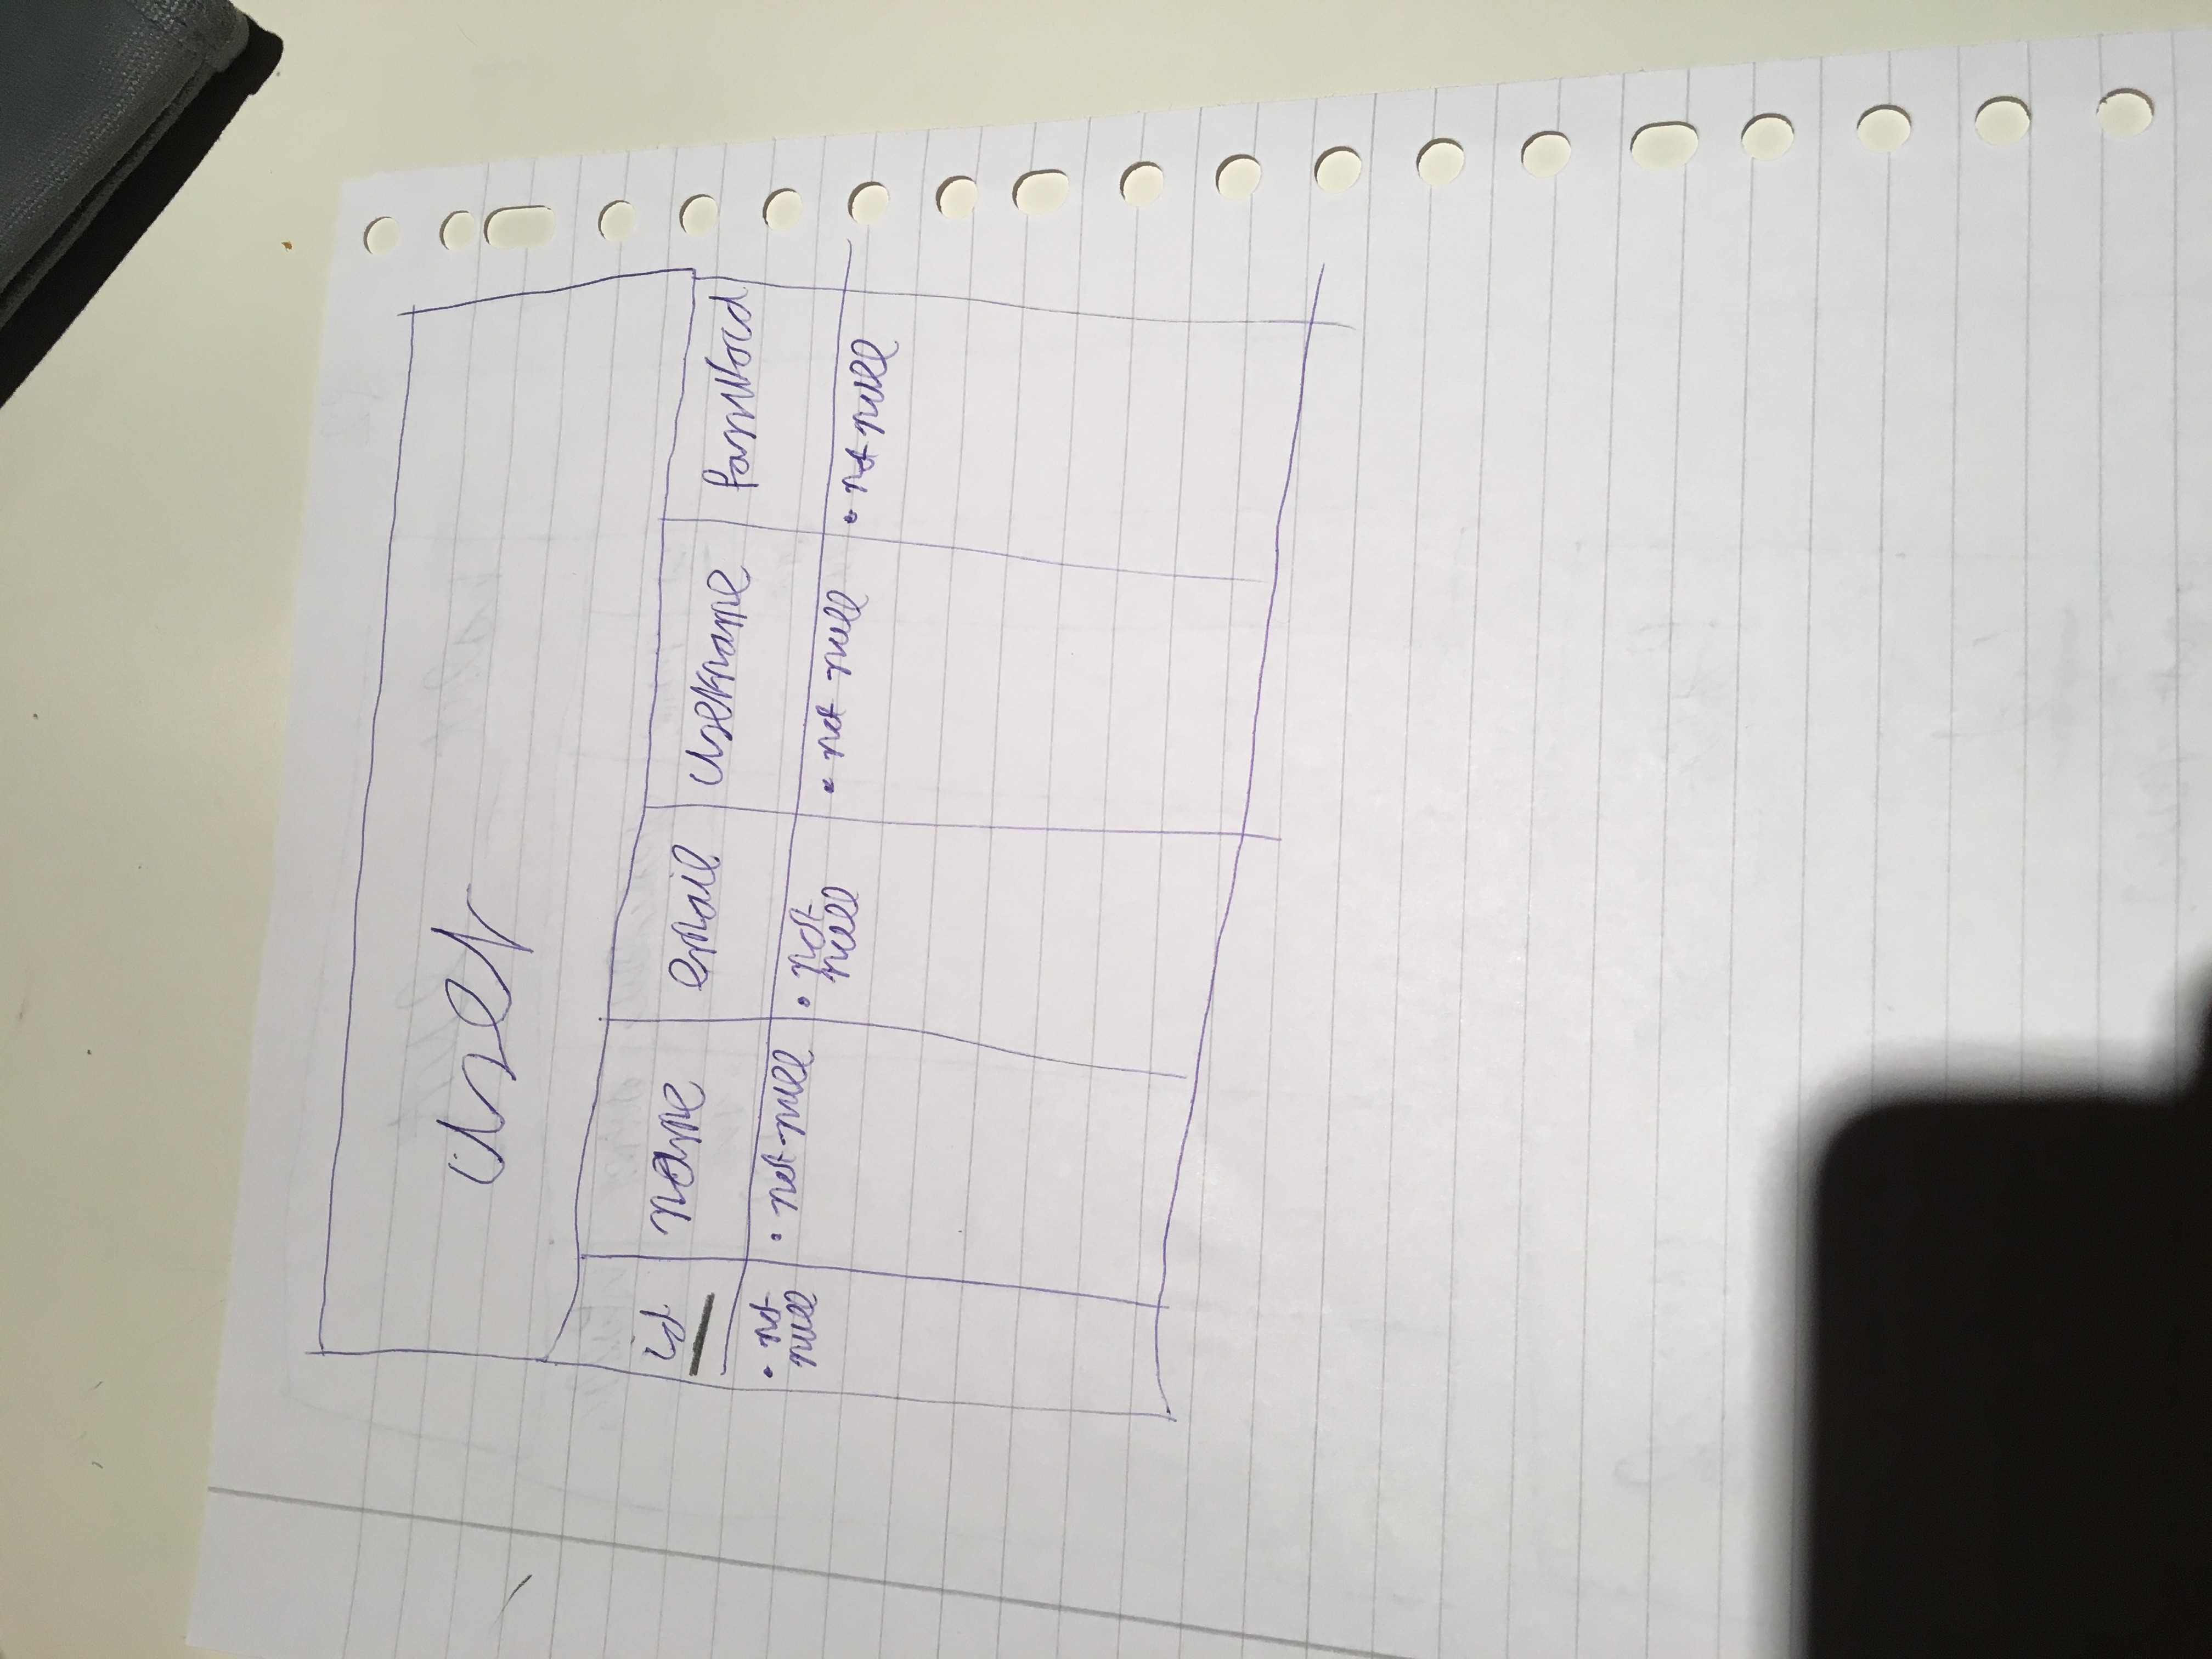 user
id name email username password
• not null • not null • not null • not null • not null